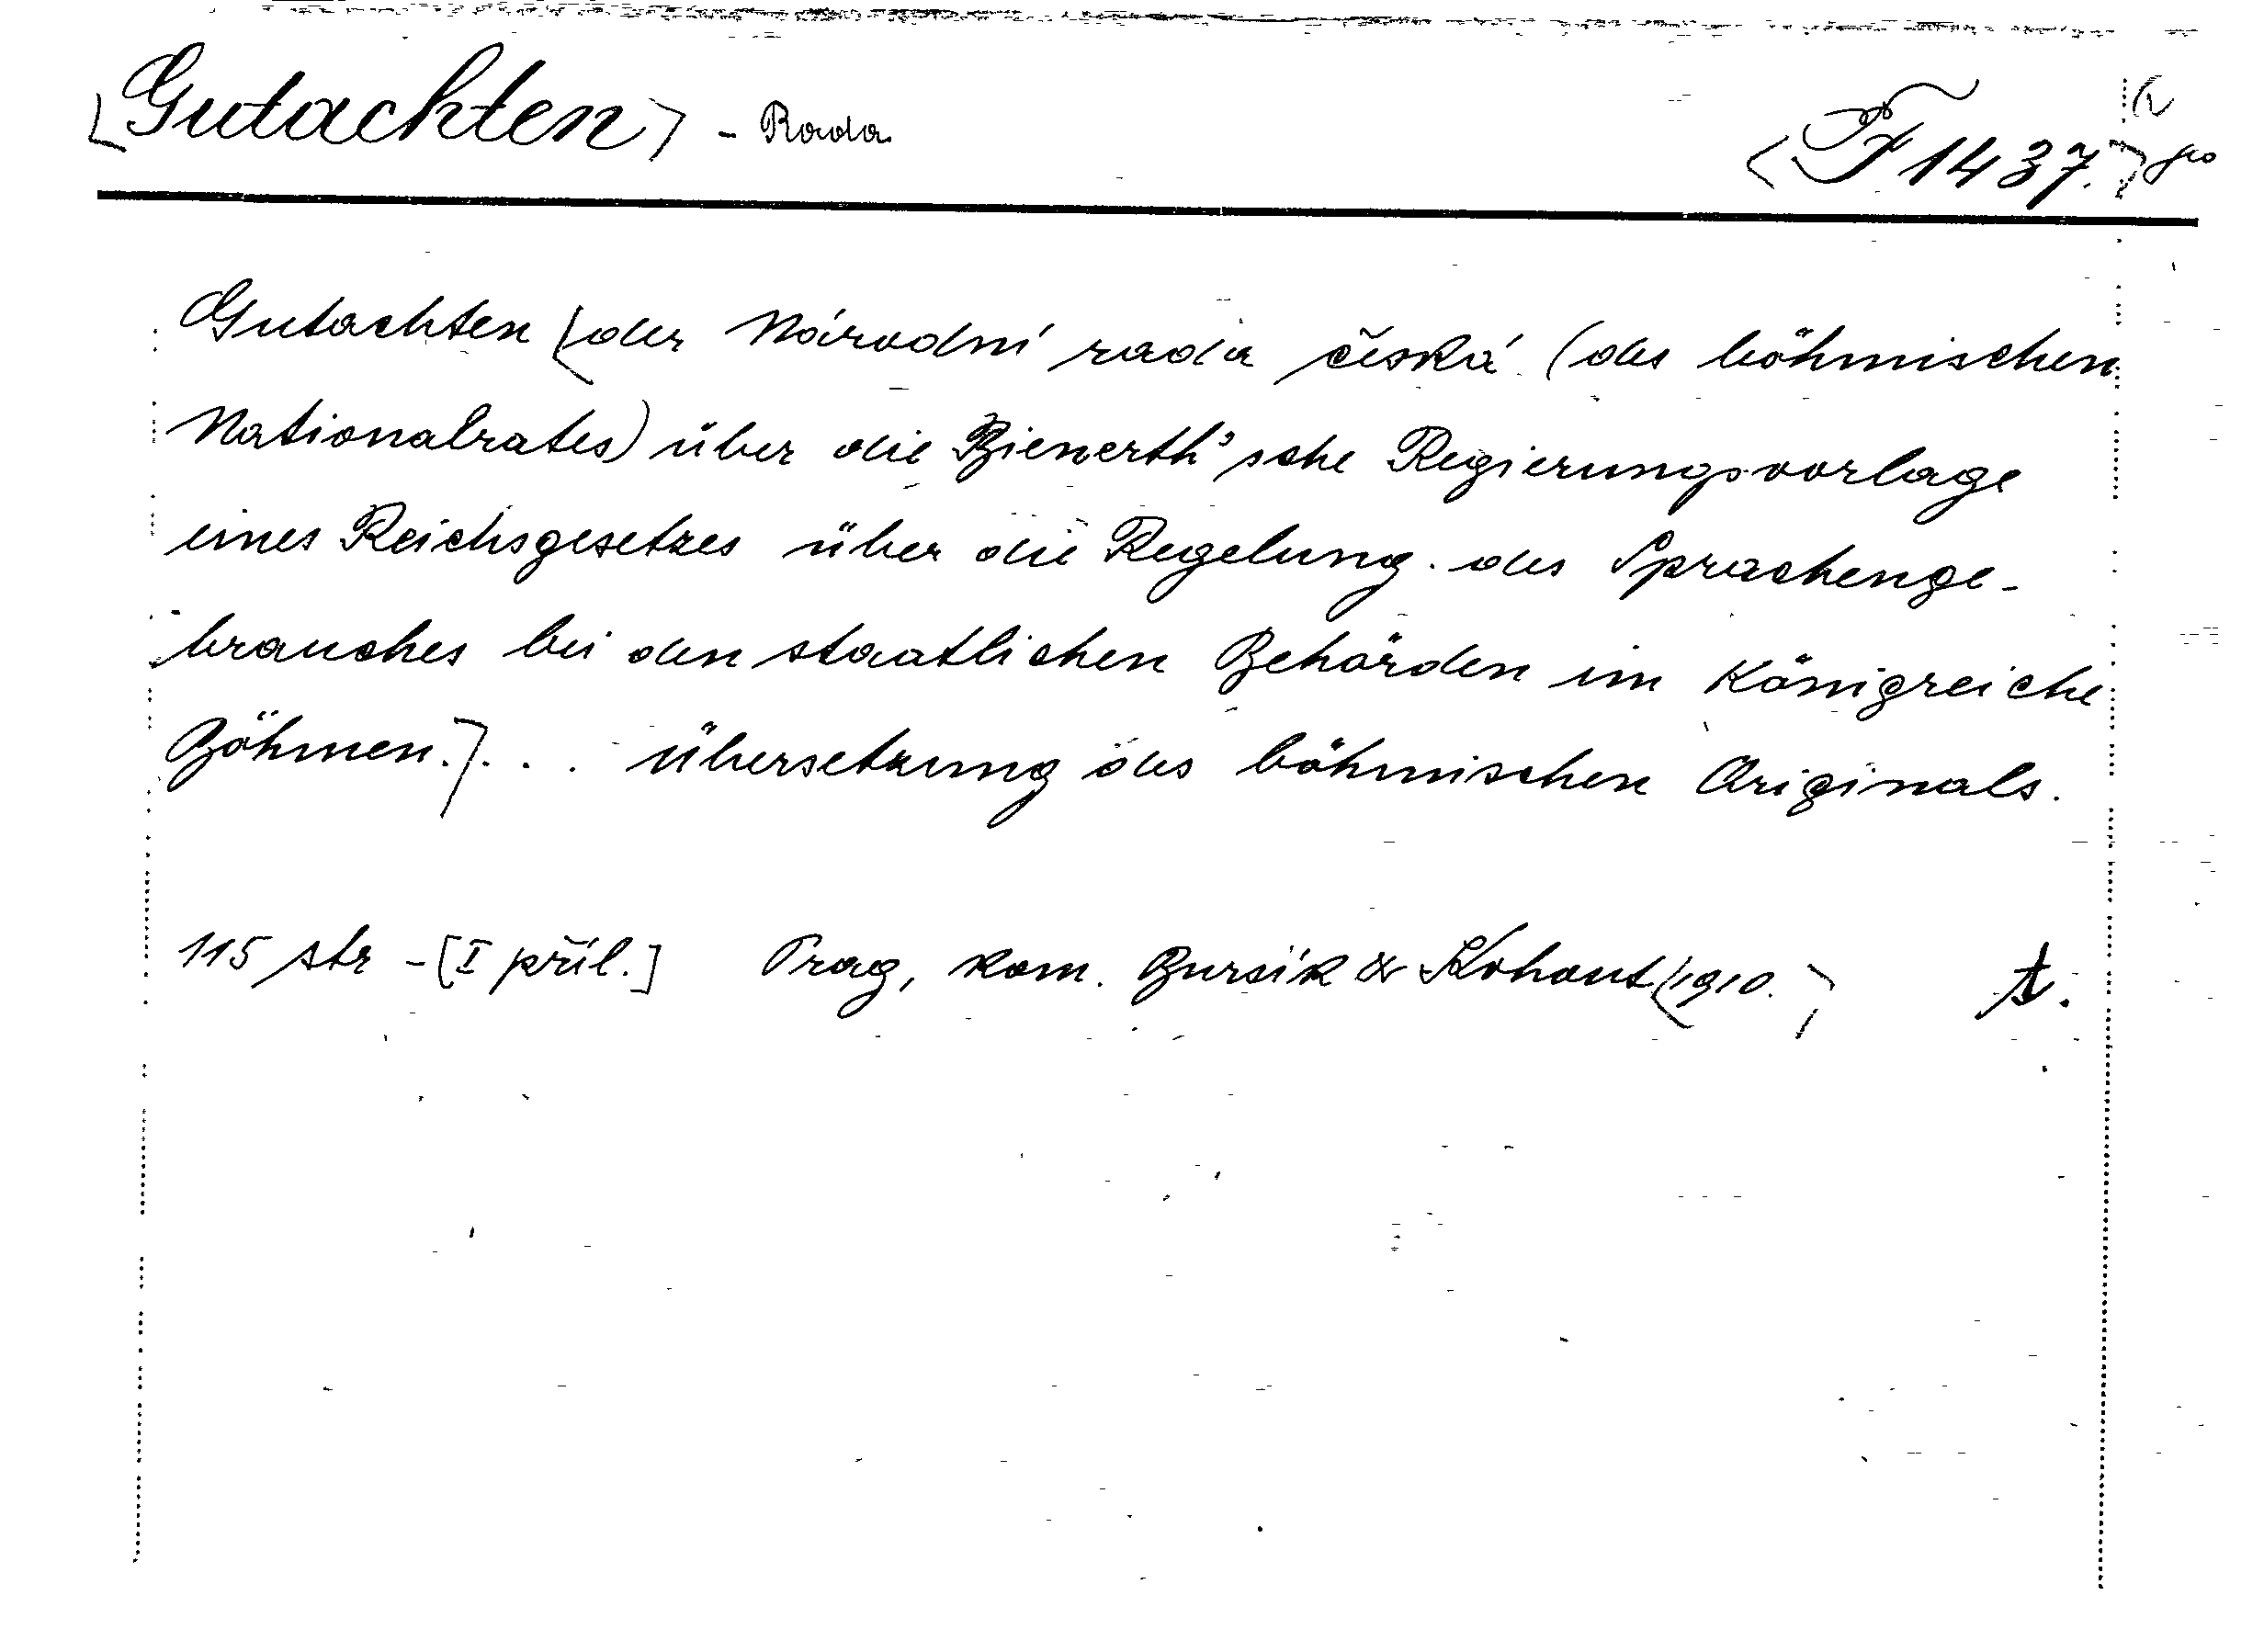 [Gutachten] - Rada
[F 1437.]
Gutachten [der Národní rada česká (des böhmischen
Nationalrates) über die Bienerth'sche Regierungsvorlage
eines Reichsgesetzes über die Regelung des Sprachenge-
brauches bei den staatlichen Behörden im Königreiche
Böhmen.] . . . Übersetzung des böhmischen Originals.
115 str - [I příl.] Prag, kom. Bursík & Kohout [1910.] t.